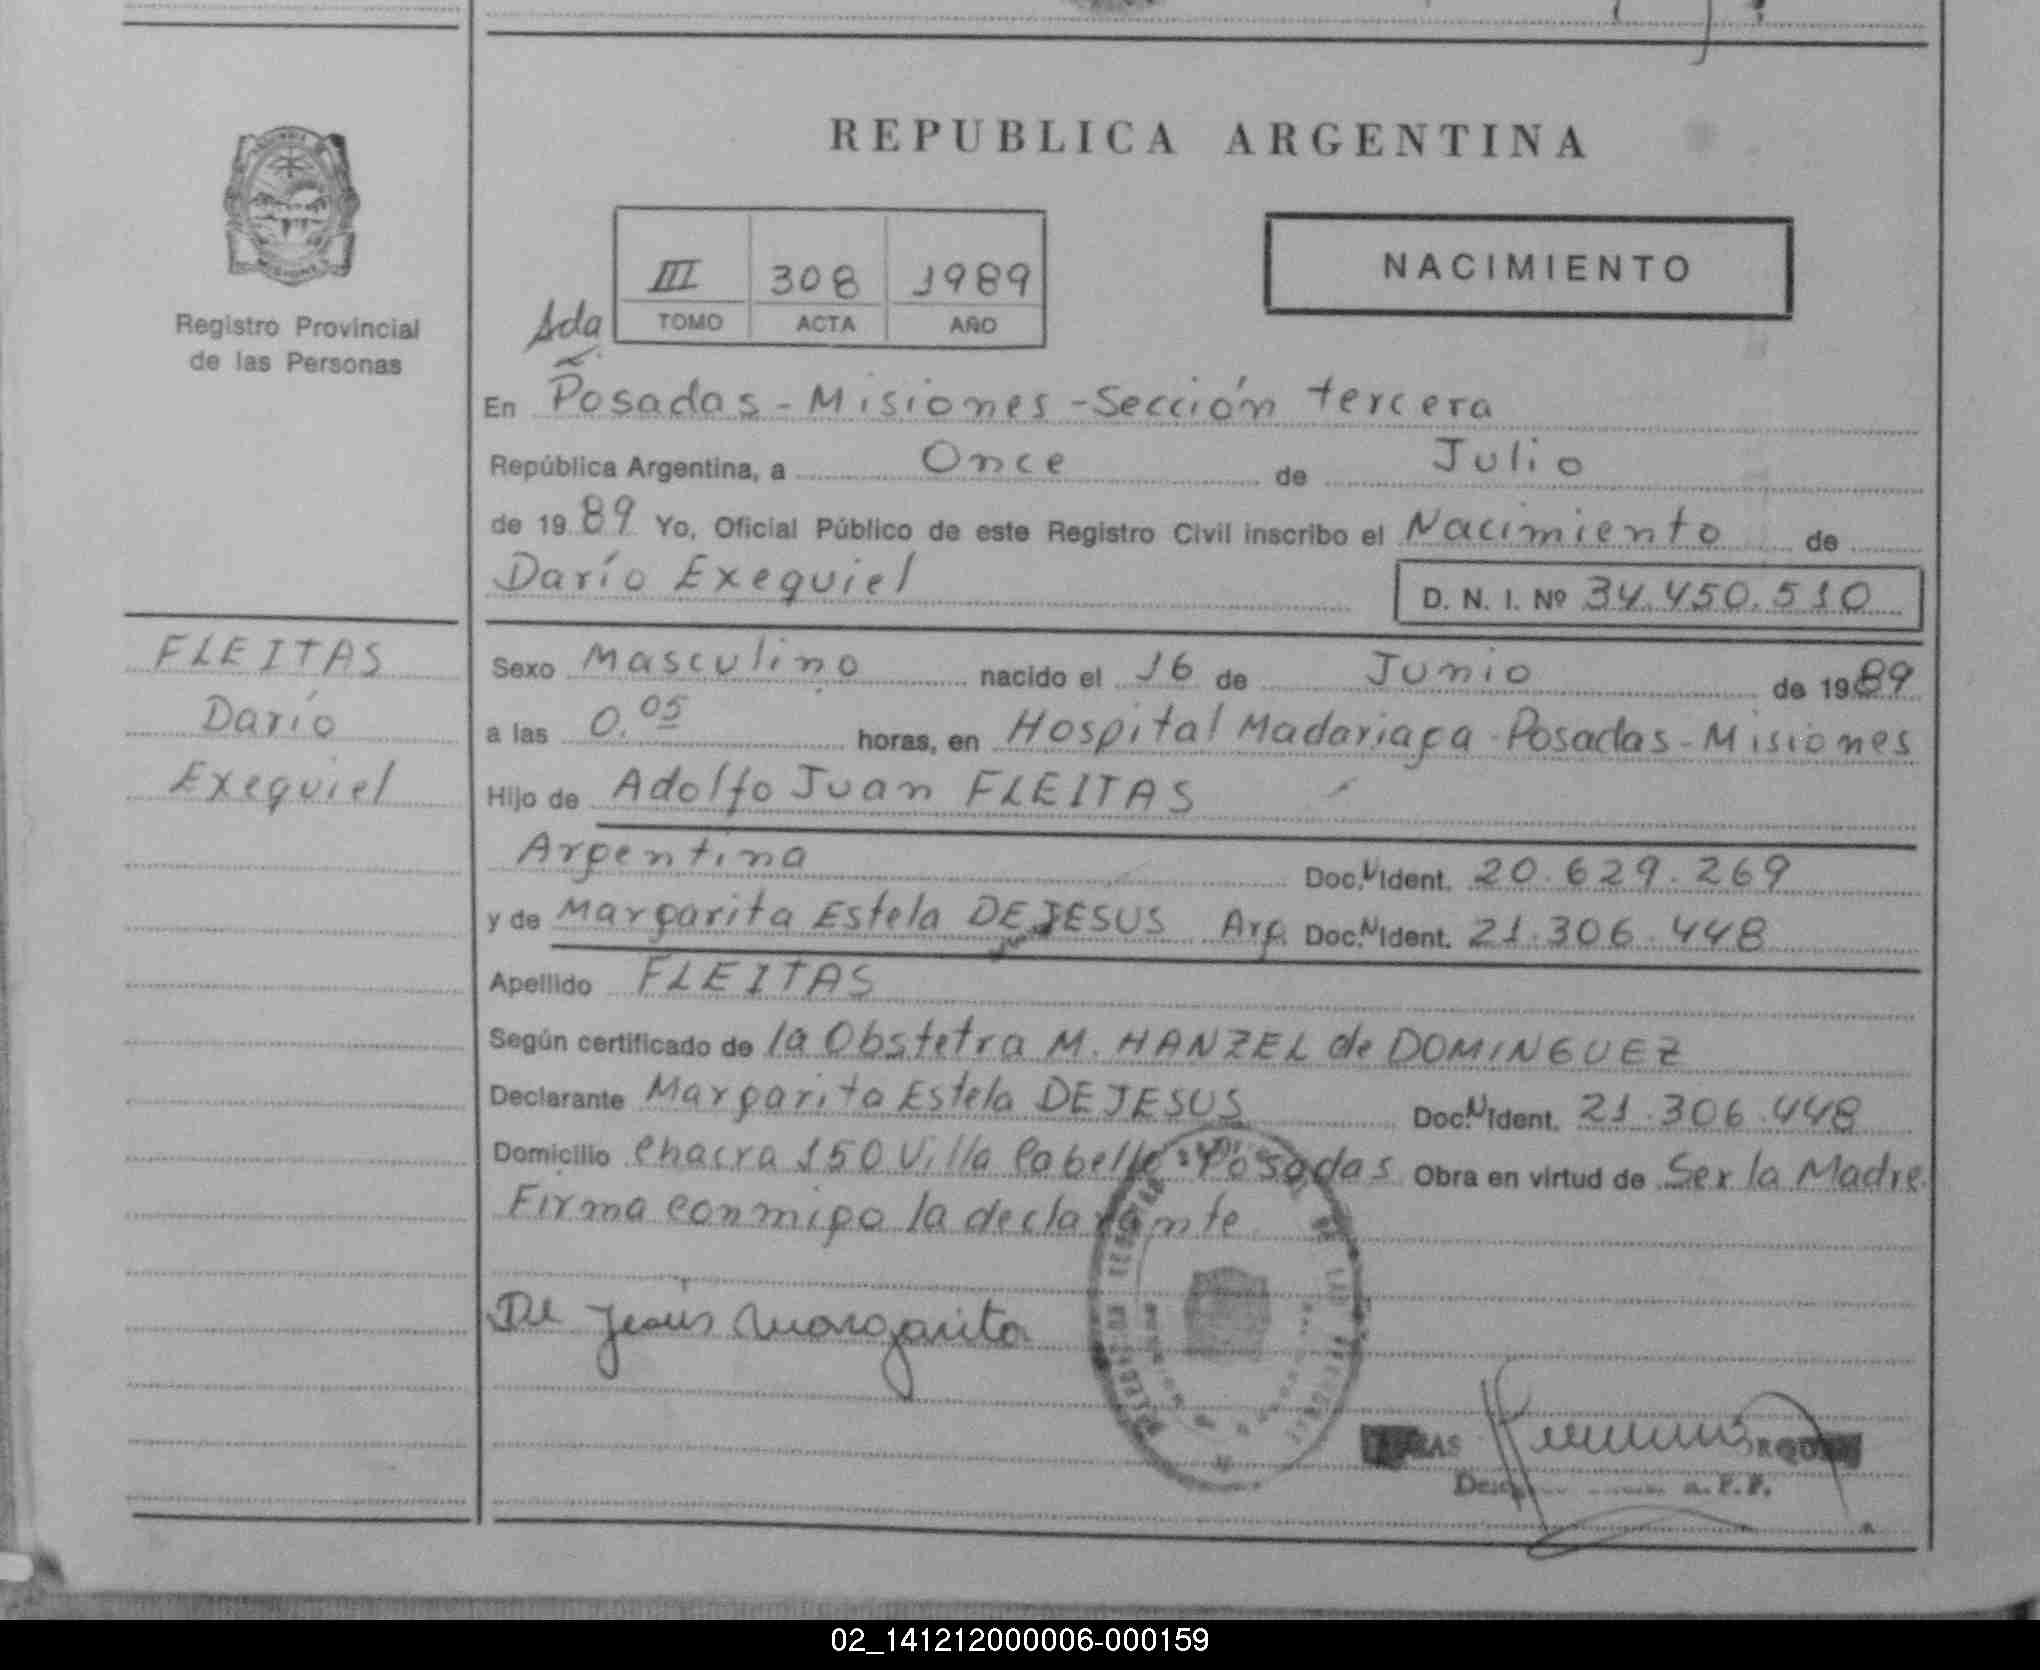 REPUBLICA ARGENTINA
Registro Provincial
de las Personas
III 308 1989
TOMO ACTA AÑO
NACIMIENTO
Ada
En Posadas - Misiones - Sección tercera
República Argentina, a Once de Julio
de 1989 Yo, Oficial Público de este Registro Civil inscribo el Nacimiento de
Darío Exequiel D. N. I. Nº 34.450.510
FLEITAS
Darío
Exequiel
Sexo Masculino nacido el 16 de Junio de 1989
a las 0.05 horas, en Hospital Madariaga - Posadas - Misiones
Hijo de Adolfo Juan FLEITAS
Argentina Doc.N Ident. 20.629.269
y de Margarita Estela DE JESUS Arg. Doc.N Ident. 21.306.448
Apellido FLEITAS
Según certificado de la Obstetra M. HANZEL de DOMINGUEZ
Declarante Margarita Estela DE JESUS Doc.N Ident. 21.306.448
Domicilio Chacra 150 Villa Cabello Posadas Obra en virtud de Ser la Madre.
Firma conmigo la declarante.
De Jesús Margarita
02_141212000006-000159